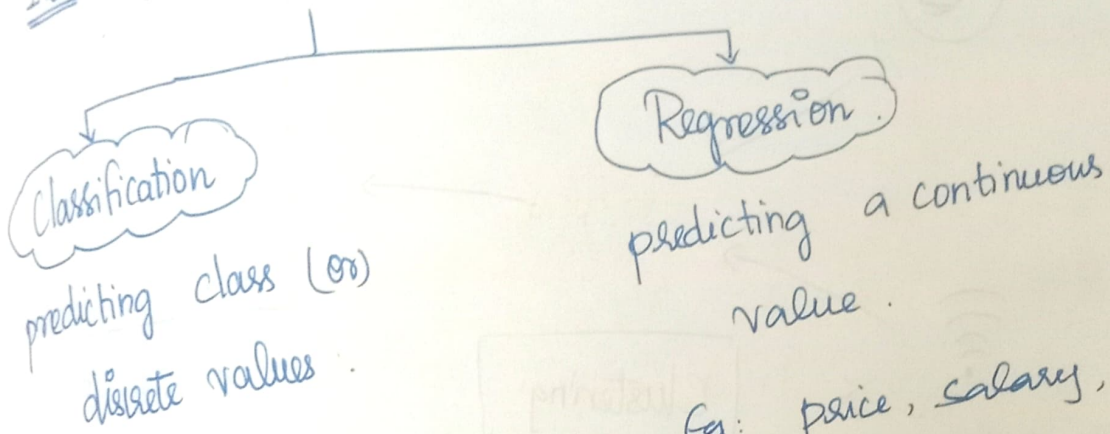 Classification
predicting class (or)
discrete values.
Regression.
predicting a continuous
value.
Eg: price, salary,